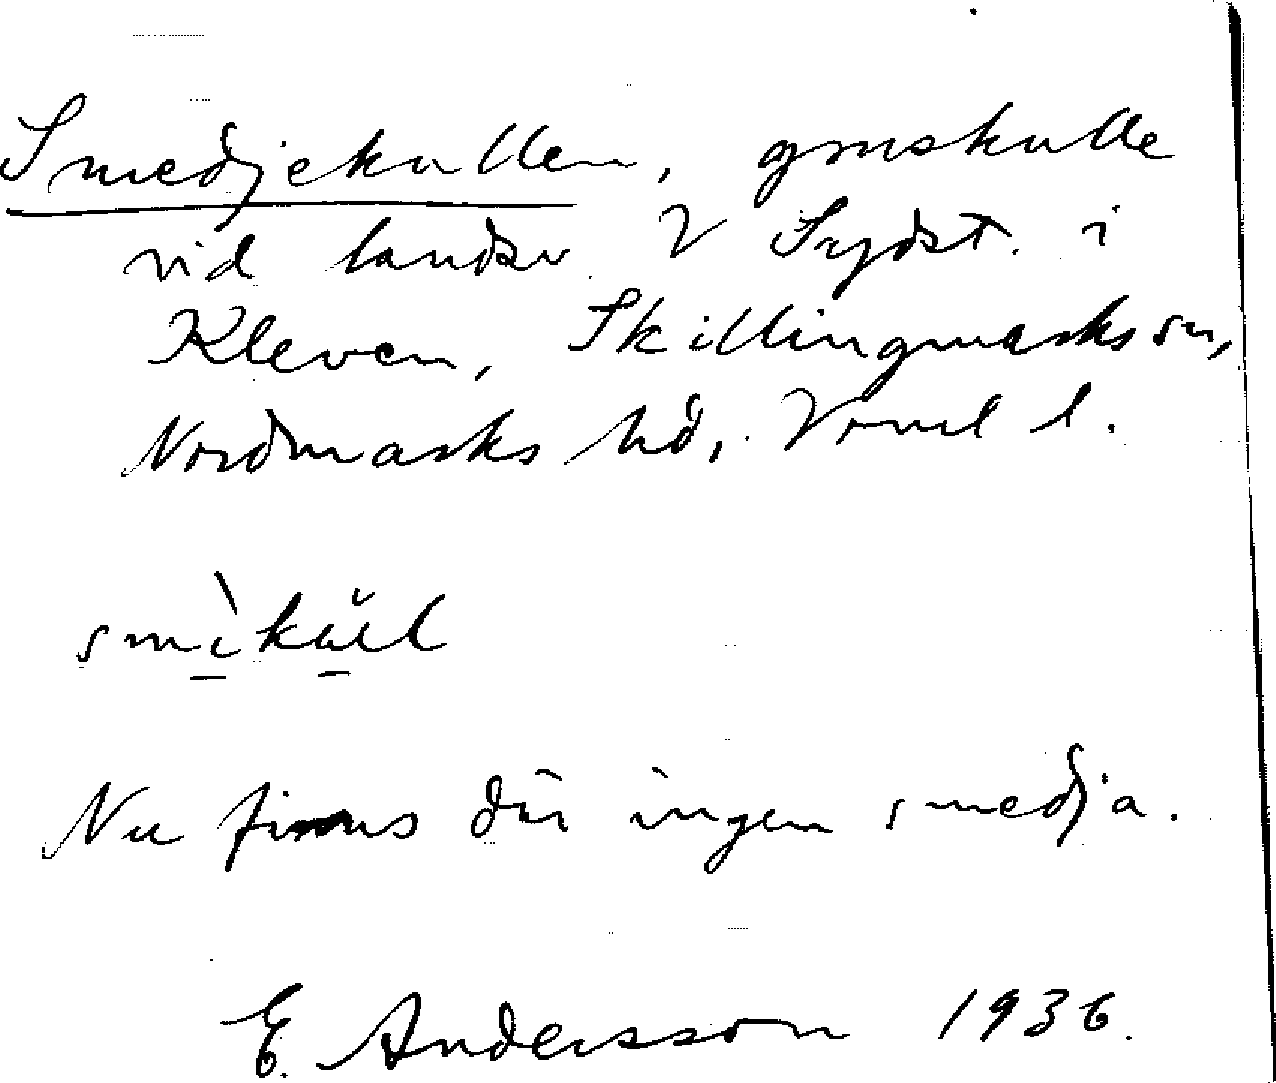 Smedjekullen, gruskulle
vid landsv. V Sydst. i
Kleven, Skillingmarks sn,
Nordmarks hd, Vrml l.
Nu finns där ingen smedja.
E. Andersson 1936.